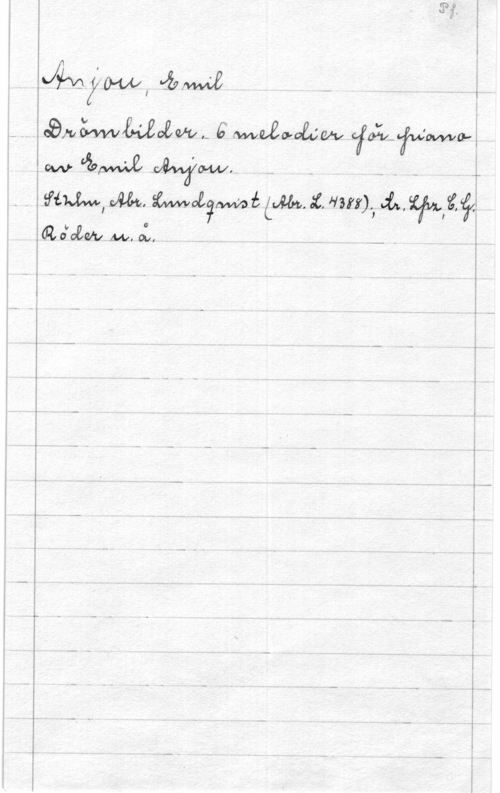 Pf.
Anjou, Emil
Drömbilder. 6 melodier för piano
av Emil Anjou.
Sthlm, Abr. Lundqvist (Abr. L. 4388); tr. Lpz, C. G.
Röder u. å.